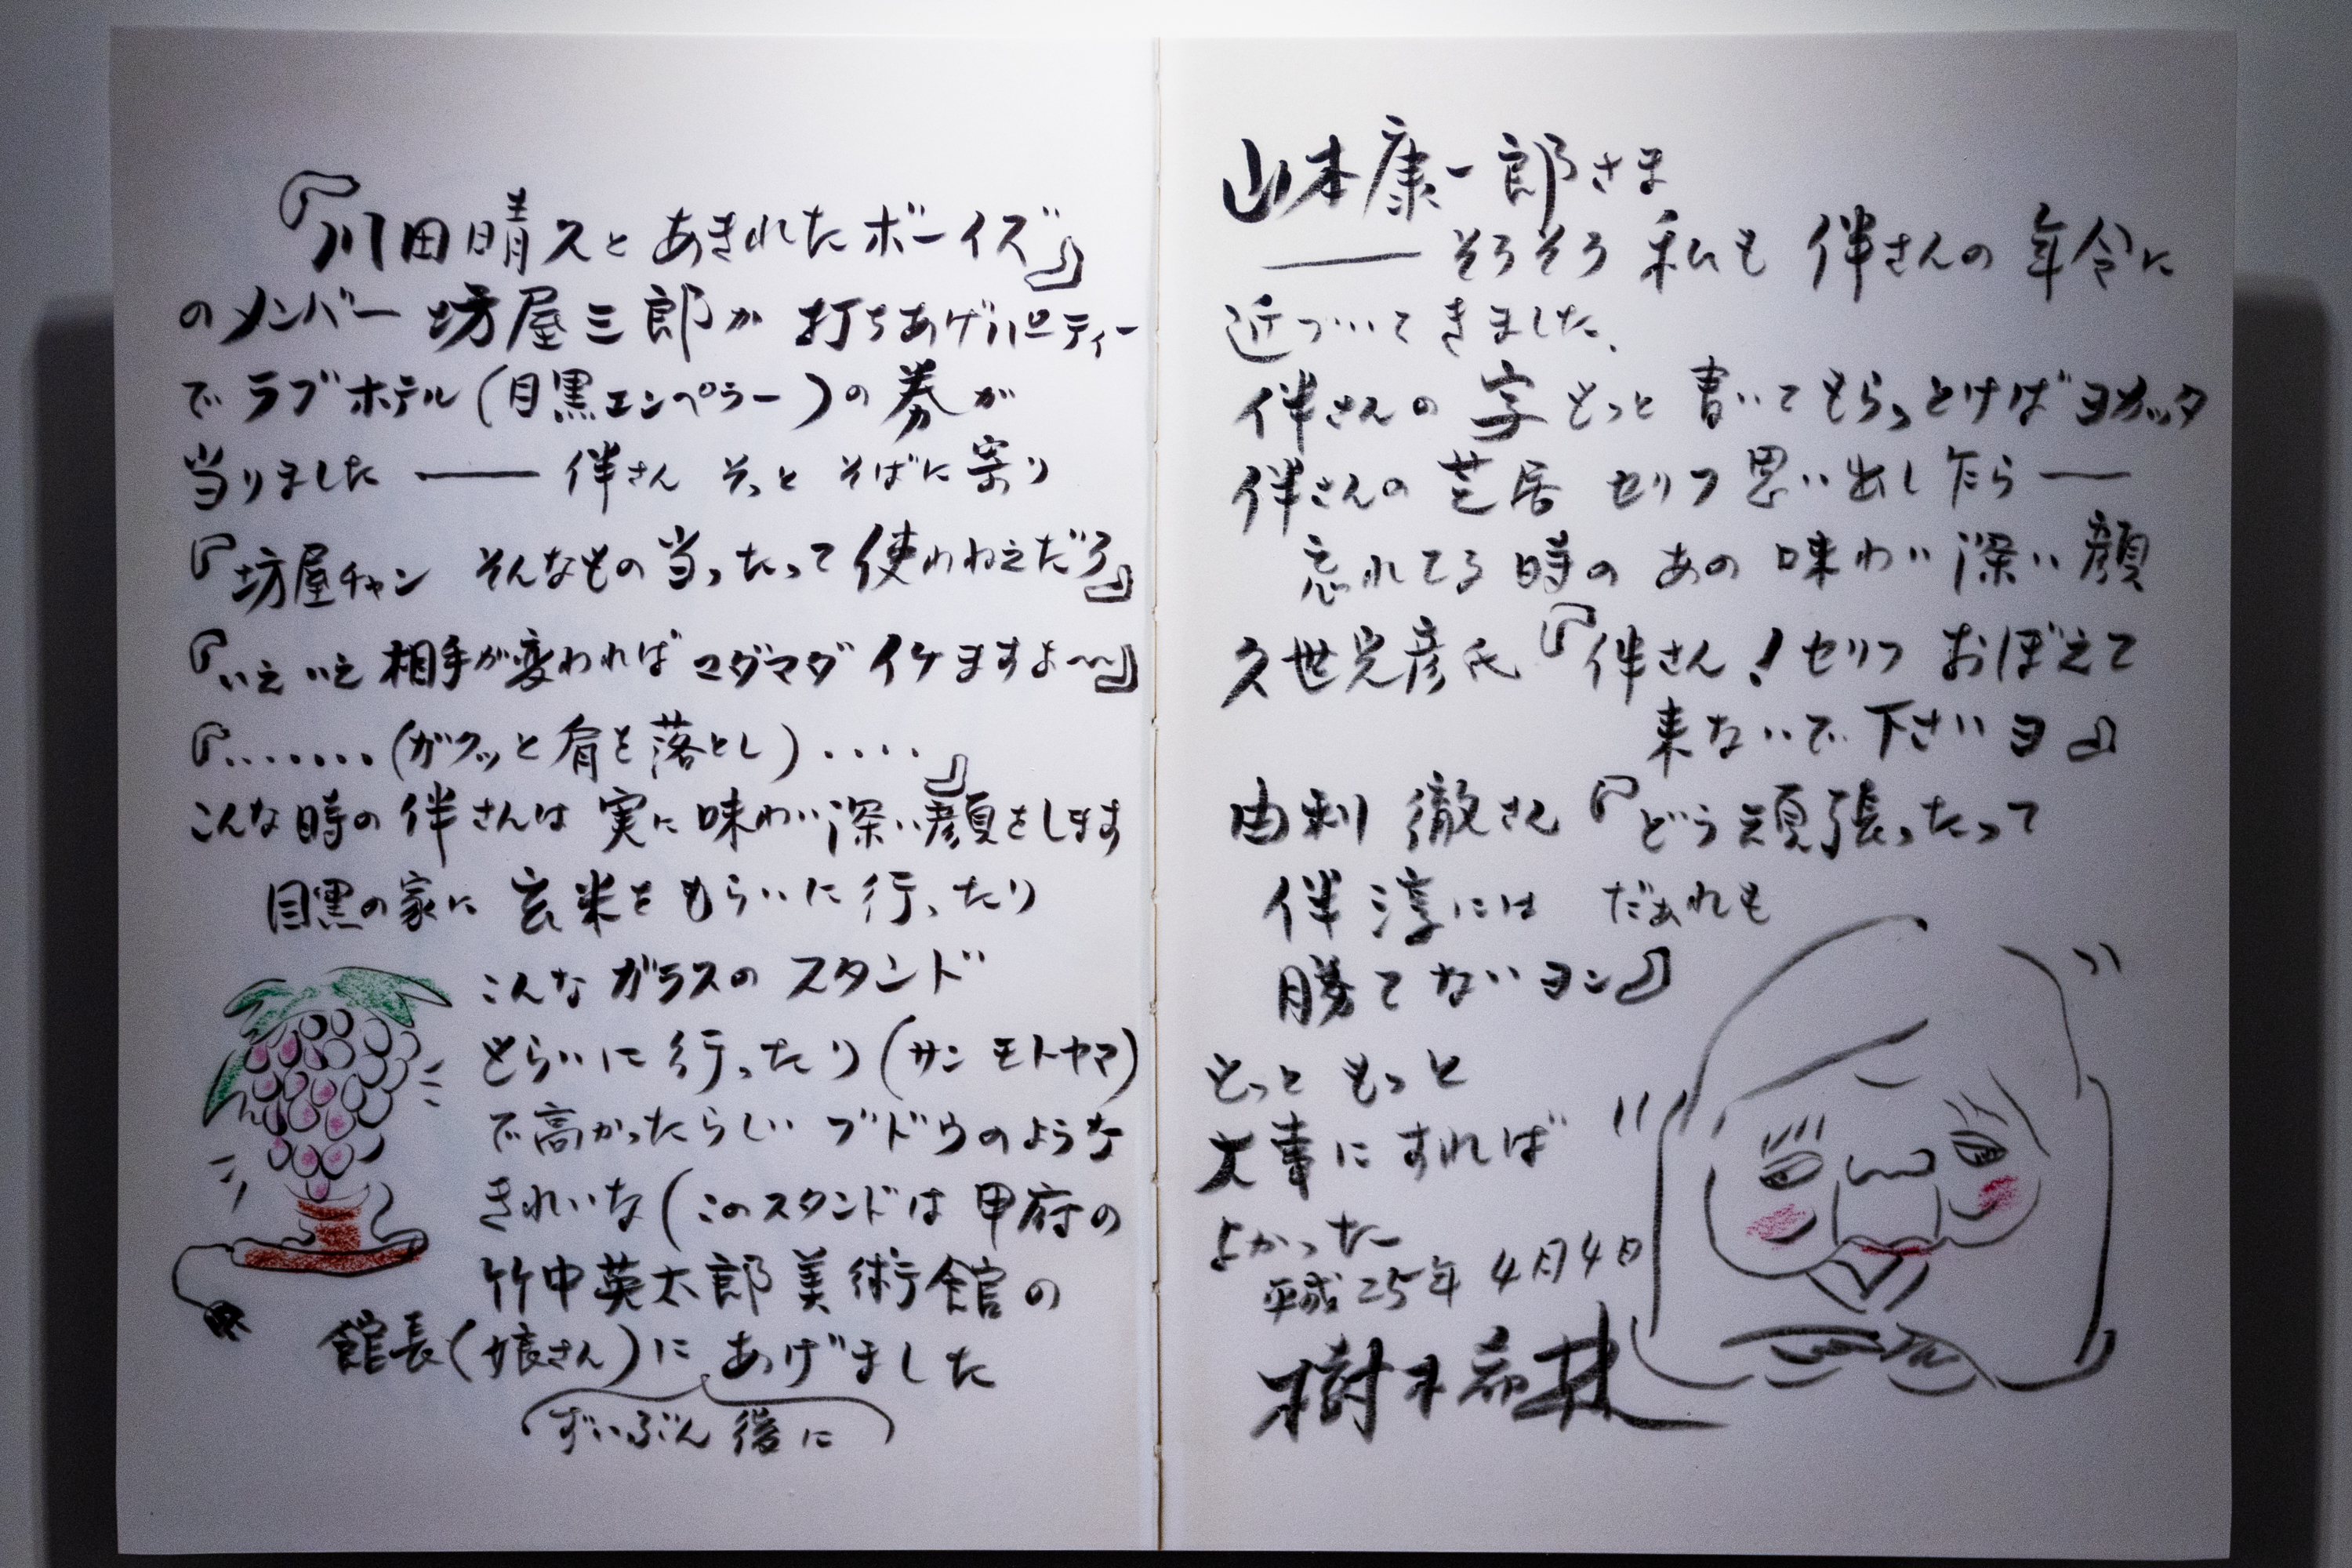 『川田晴久とあきれたボーイズ』
のメンバー 坊屋三郎が 打ちあげパーティー
で ラブホテル(目黒エンペラー)の 券が
当りました ―― 伴さん そっと そばに寄り
『坊屋チャン そんなもの 当ったって 使わねえだろ』
『いえ いえ 相手が変わればマダマダ イケますよ〜』
『.......(ガクッと肩を落とし)....』
こんな時の 伴さんは 実に味わい深い顔をします
目黒の家に 玄米をもらいに行ったり
こんな ガラスの スタンド
もらいに 行ったり(サン モトヤマ)
で高かったらしい ブドウのような
きれいな(このスタンドは 甲府の
竹中英太郎美術館の
館長(娘さん)に あげました
ずいぶん 後に
山本康一郎さま
―― そろそろ 私も 伴さんの 年令に
近づいてきました、
伴さんの 字 もっと 書いてもらっとけばヨカッタ
伴さんの 芝居 セリフ 思い出したら ――
忘れてる時の あの 味わい深い顔
久世光彦氏『伴さん!セリフ おぼえて
来ないで下さいヨ』
由利 徹さん『どう頑張ったって
伴 淳には だぁれも
勝てないヨン』
もっと もっと
大事にすれば
よかったー
平成25年4月4日
樹木希林